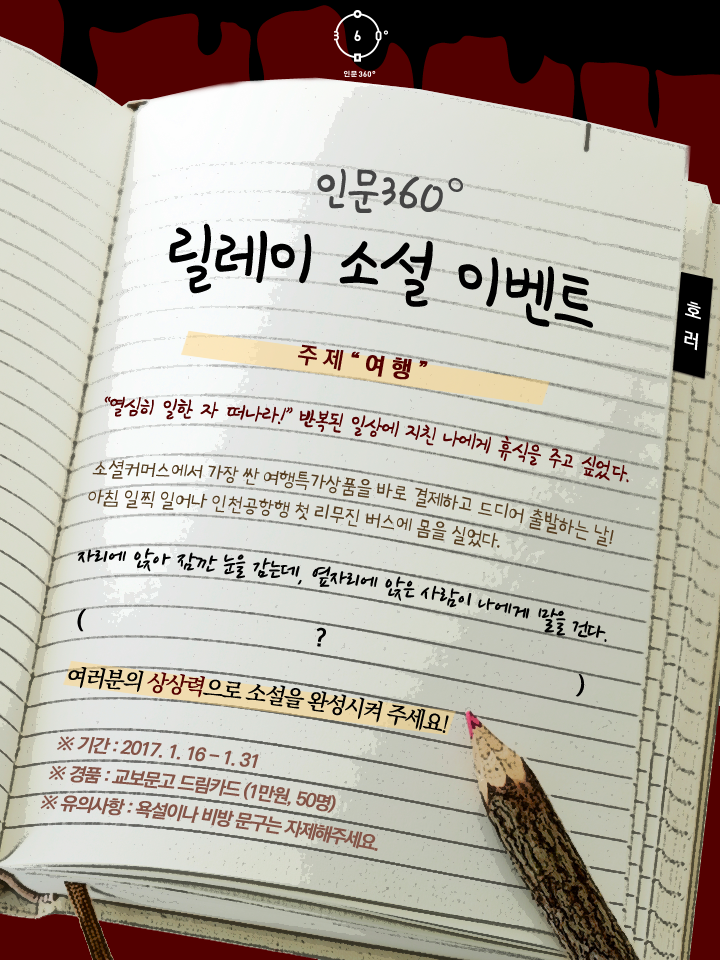 3 6 0°
인문360°
인문360°
릴레이 소설 이벤트
호러
주제 “여행”
“열심히 일한 자 떠나라!” 반복된 일상에 지친 나에게 휴식을 주고 싶었다.
소셜커머스에서 가장 싼 여행특가상품을 바로 결제하고 드디어 출발하는 날!
아침 일찍 일어나 인천공항행 첫 리무진 버스에 몸을 실었다.
자리에 앉아 잠깐 눈을 감는데, 옆자리에 앉은 사람이 나에게 말을 건다.
( ? )
여러분의 상상력으로 소설을 완성시켜 주세요!
※ 기간 : 2017. 1. 16 – 1. 31
※ 경품 : 교보문고 드림카드 (1만원, 50명)
※ 유의사항 : 욕설이나 비방 문구는 자제해주세요.